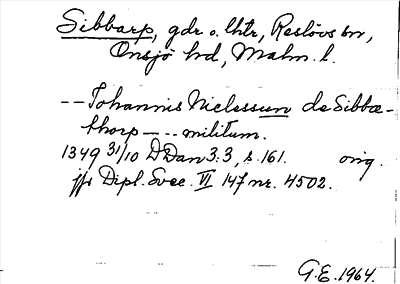 Sibbarp, gdr o. lhtr, Reslövs sn,
Onsjö hd, Malm. l.
-- Johannis Niclessun de Sibbæ-
thorp -- -- militum.
1349 31/10 DDan 3:3, s. 161. orig.
jfr Dipl. Svec. VI 147 nr. 4502.
G.E. 1964.